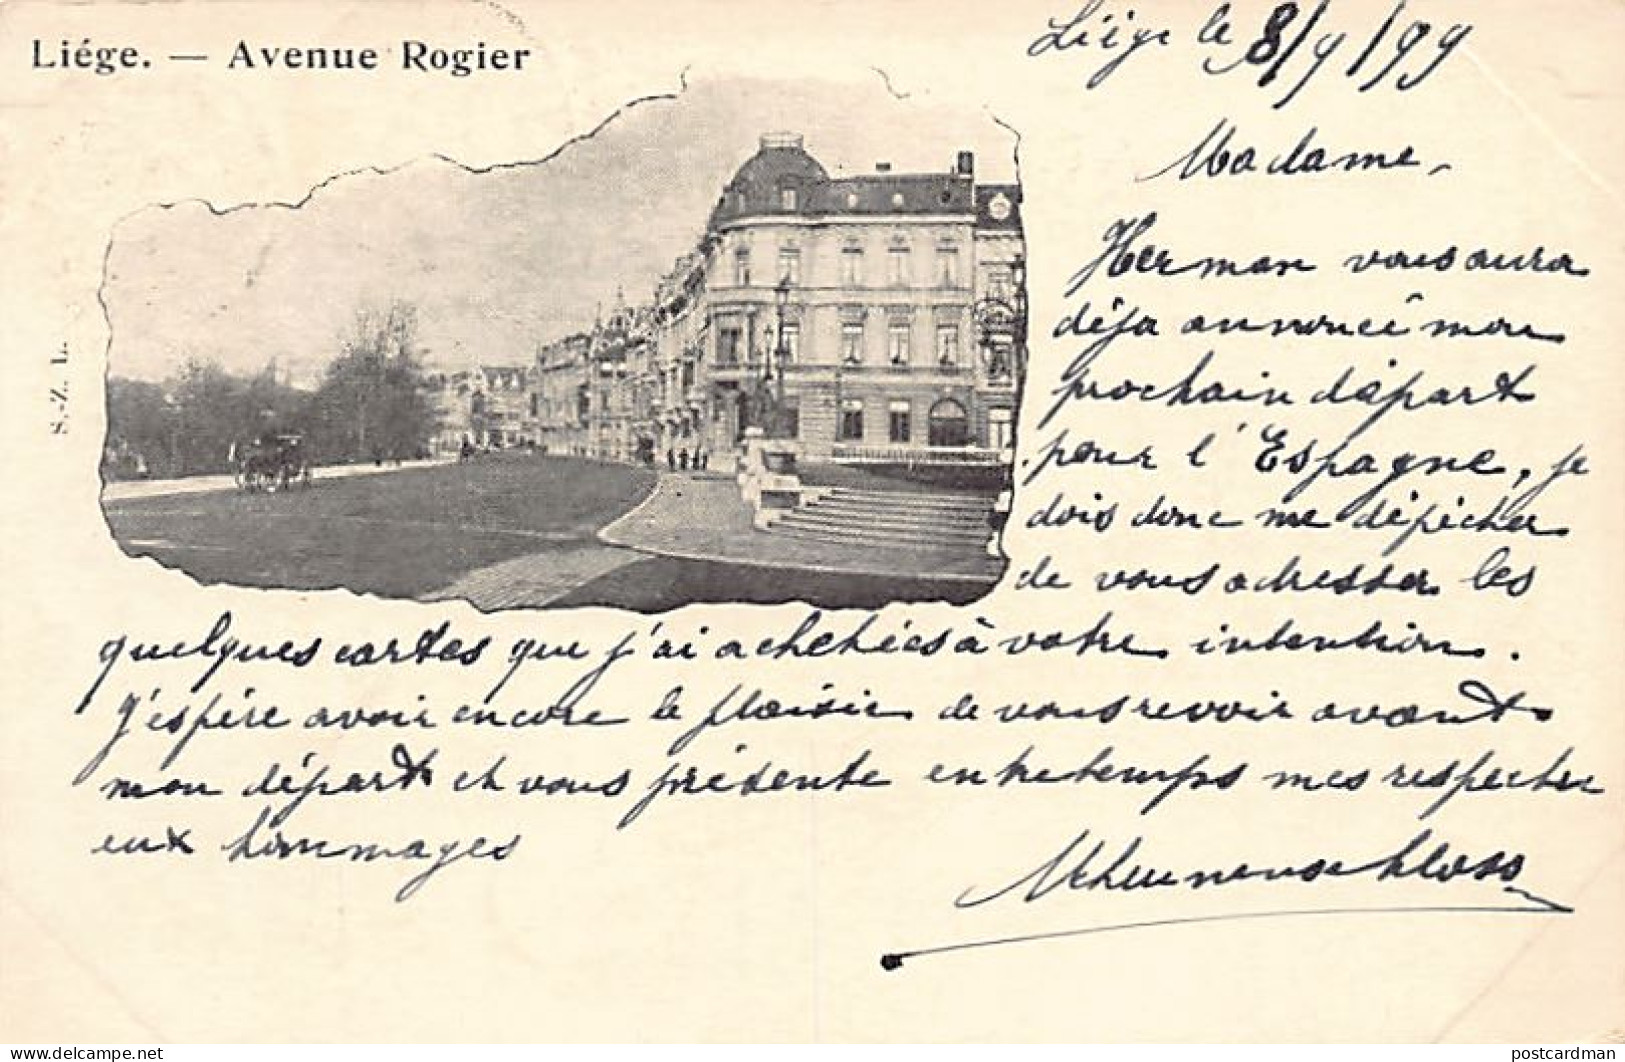 Liége. — Avenue Rogier
Liège le 8/9/99
Madame,
Herman vous aura
déja annoncé mon
prochain départ
pour l'Espagne, je
dois donc me dépêcher
de vous adresser les
quelques cartes que j'ai achetées à votre intention.
J'espère avoir encore le plaisir de vous revoir avant
mon départ et vous présente entretemps mes respectu
eux hommages
S.-Z. L.
delcampe.net
postcardman